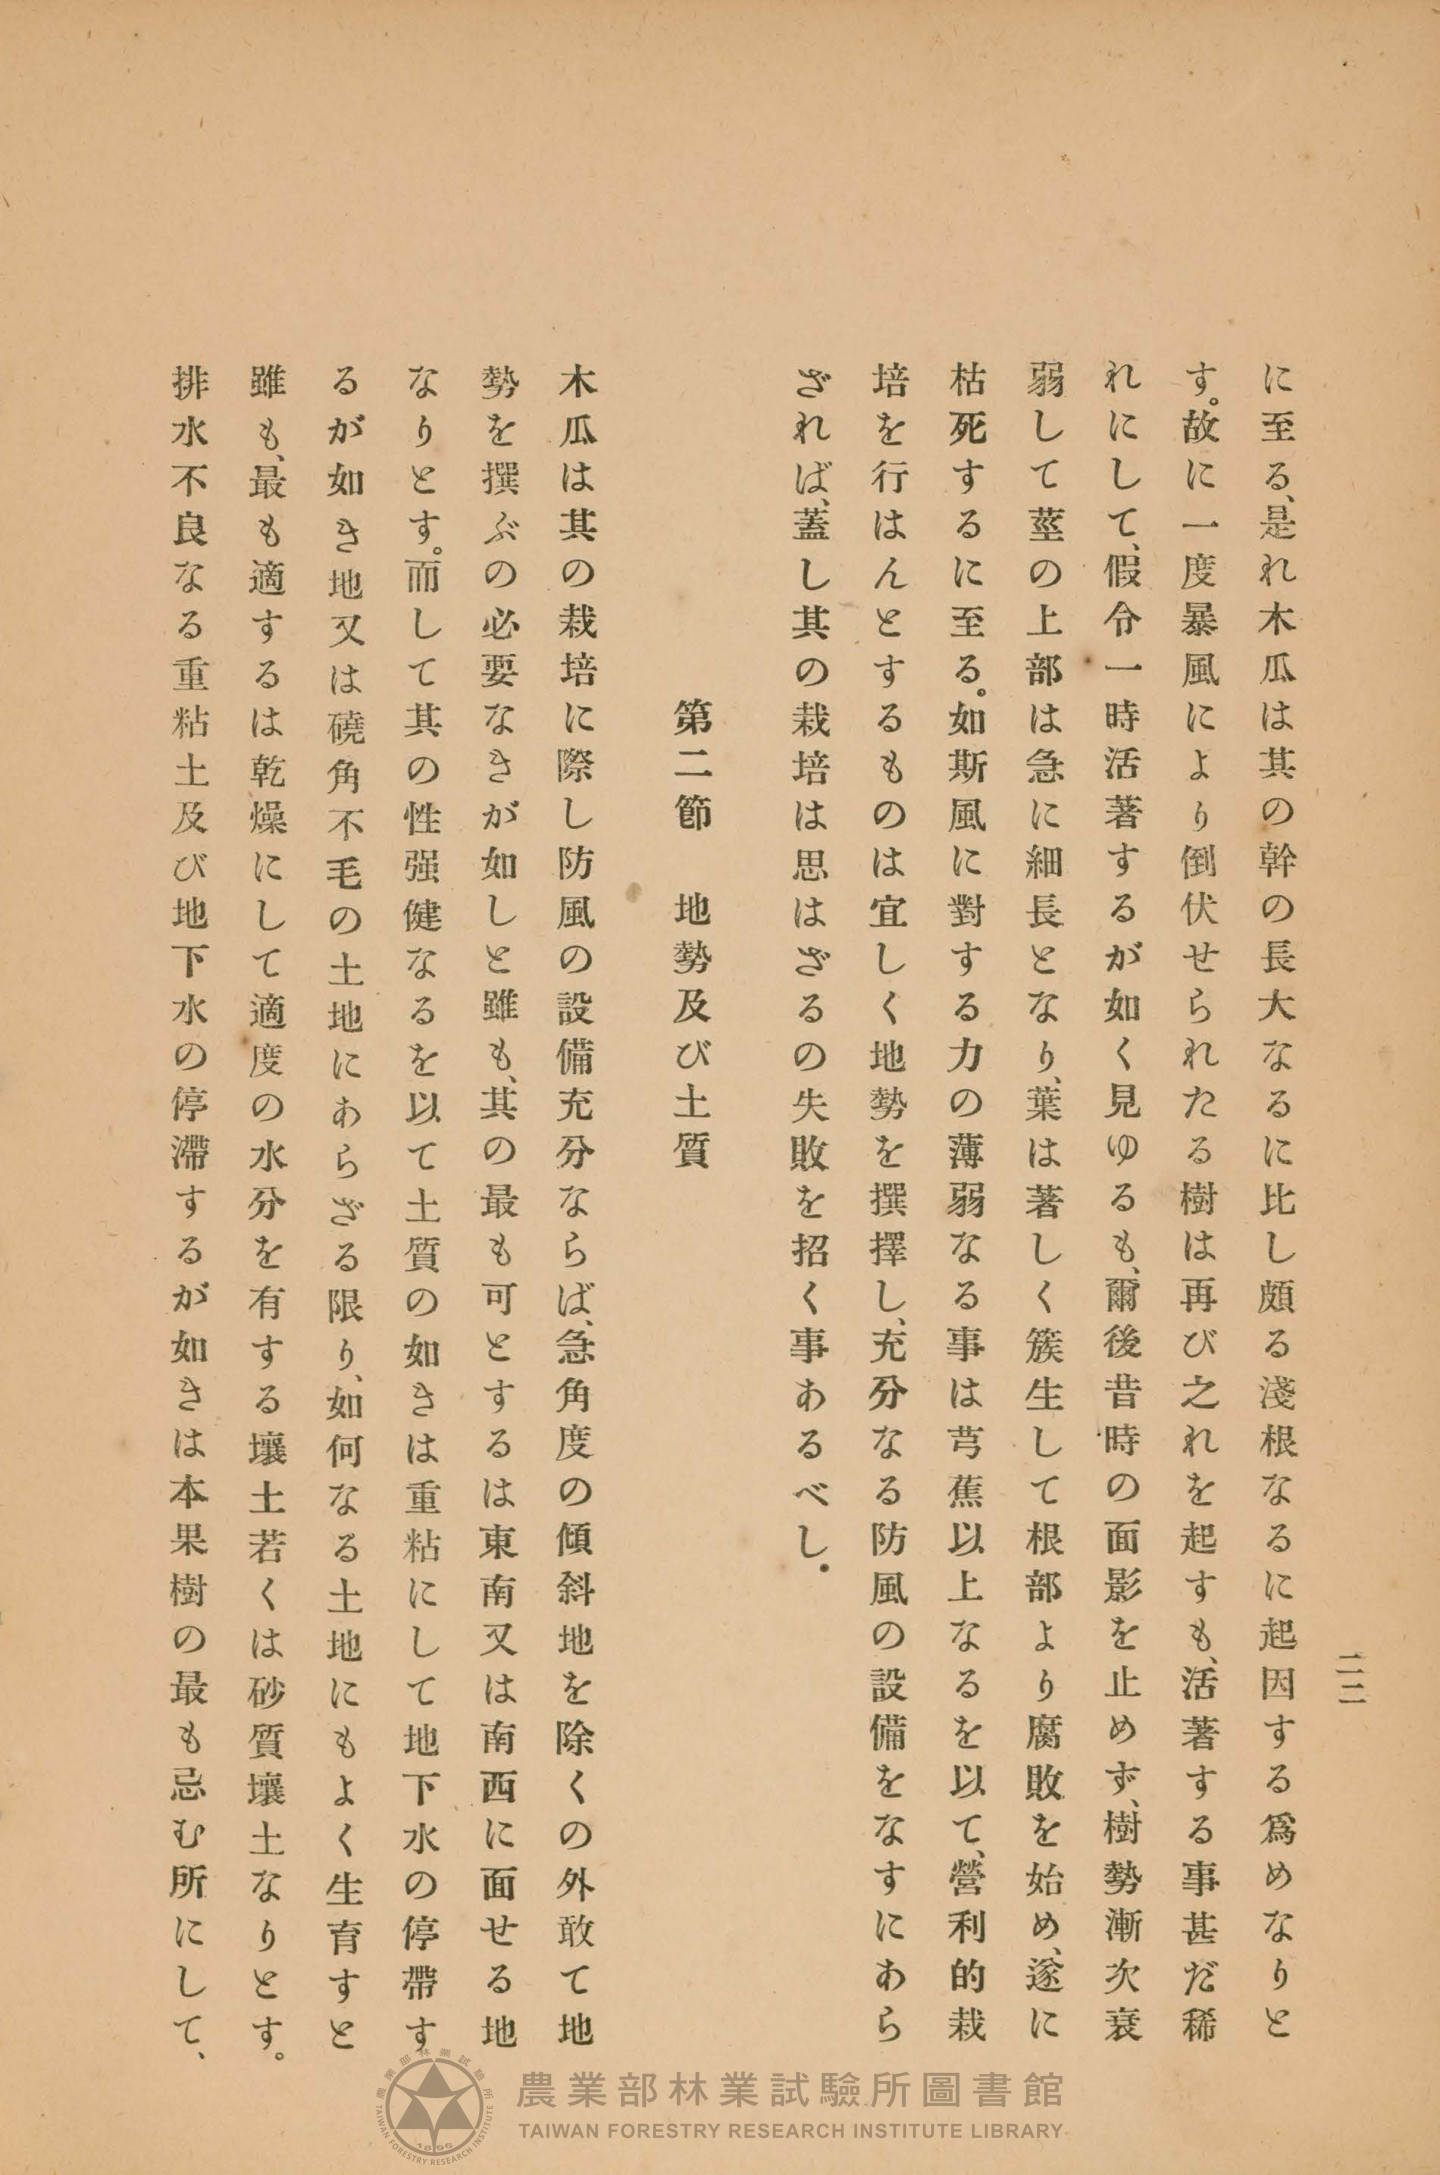 二二
に至る、是れ木瓜は其の幹の長大なるに比し頗る淺根なるに起因する爲めなりと
す。故に一度暴風により倒伏せられたる樹は再び之れを起すも、活著する事甚だ稀
れにして、假令一時活著するが如く見ゆるも、爾後昔時の面影を止めず、樹勢漸次衰
弱して莖の上部は急に細長となり、葉は著しく簇生して根部より腐敗を始め、遂に
枯死するに至る。如斯風に對する力の薄弱なる事は芎蕉以上なるを以て、營利的栽
培を行はんとするものは宜しく地勢を撰擇し、充分なる防風の設備をなすにあら
ざれば、蓋し其の栽培は思はざるの失敗を招く事あるべし.
第二節 地勢及び土質
木瓜は其の栽培に際し防風の設備充分ならば、急角度の傾斜地を除くの外敢て地
勢を撰ぶの必要なきが如しと雖も、其の最も可とするは東南又は南西に面せる地
なりとす。而して其の性强健なるを以て土質の如きは重粘にして地下水の停帶す
るが如き地又は磽角不毛の土地にあらざる限り、如何なる土地にもよく生育すと
雖も、最も適するは乾燥にして適度の水分を有する壤土若くは砂質壤土なりとす。
排水不良なる重粘土及び地下水の停滯するが如きは本果樹の最も忌む所にして、
農業部林業試驗所圖書館
TAIWAN FORESTRY RESEARCH INSTITUTE LIBRARY
農業部林業試驗所
TAIWAN FORESTRY RESEARCH INSTITUTE
1896